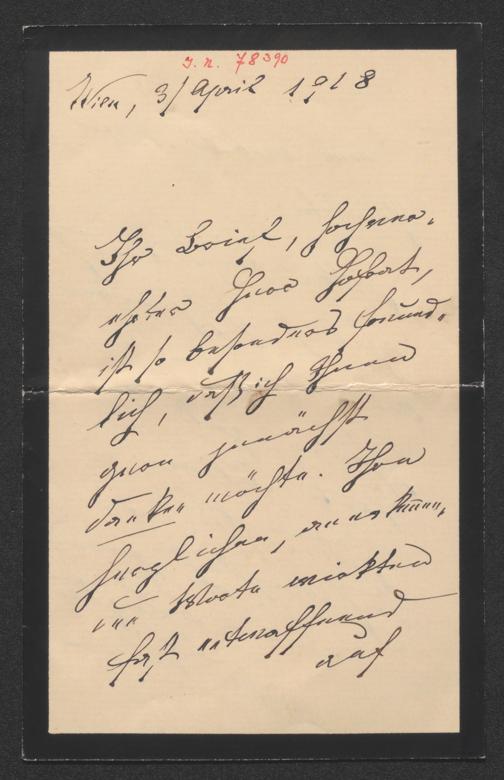 I. N. 78390
Wien, 3/April 1918
Ihr Brief, hochver-
ehrter Herr Hofrat,
ist so besonders freund-
lich, daß ich Ihnen
zunächst
danken möchte. Ihre
herzlichen, anerkennen-
Worte wirkten
fast entwaffnend
auf